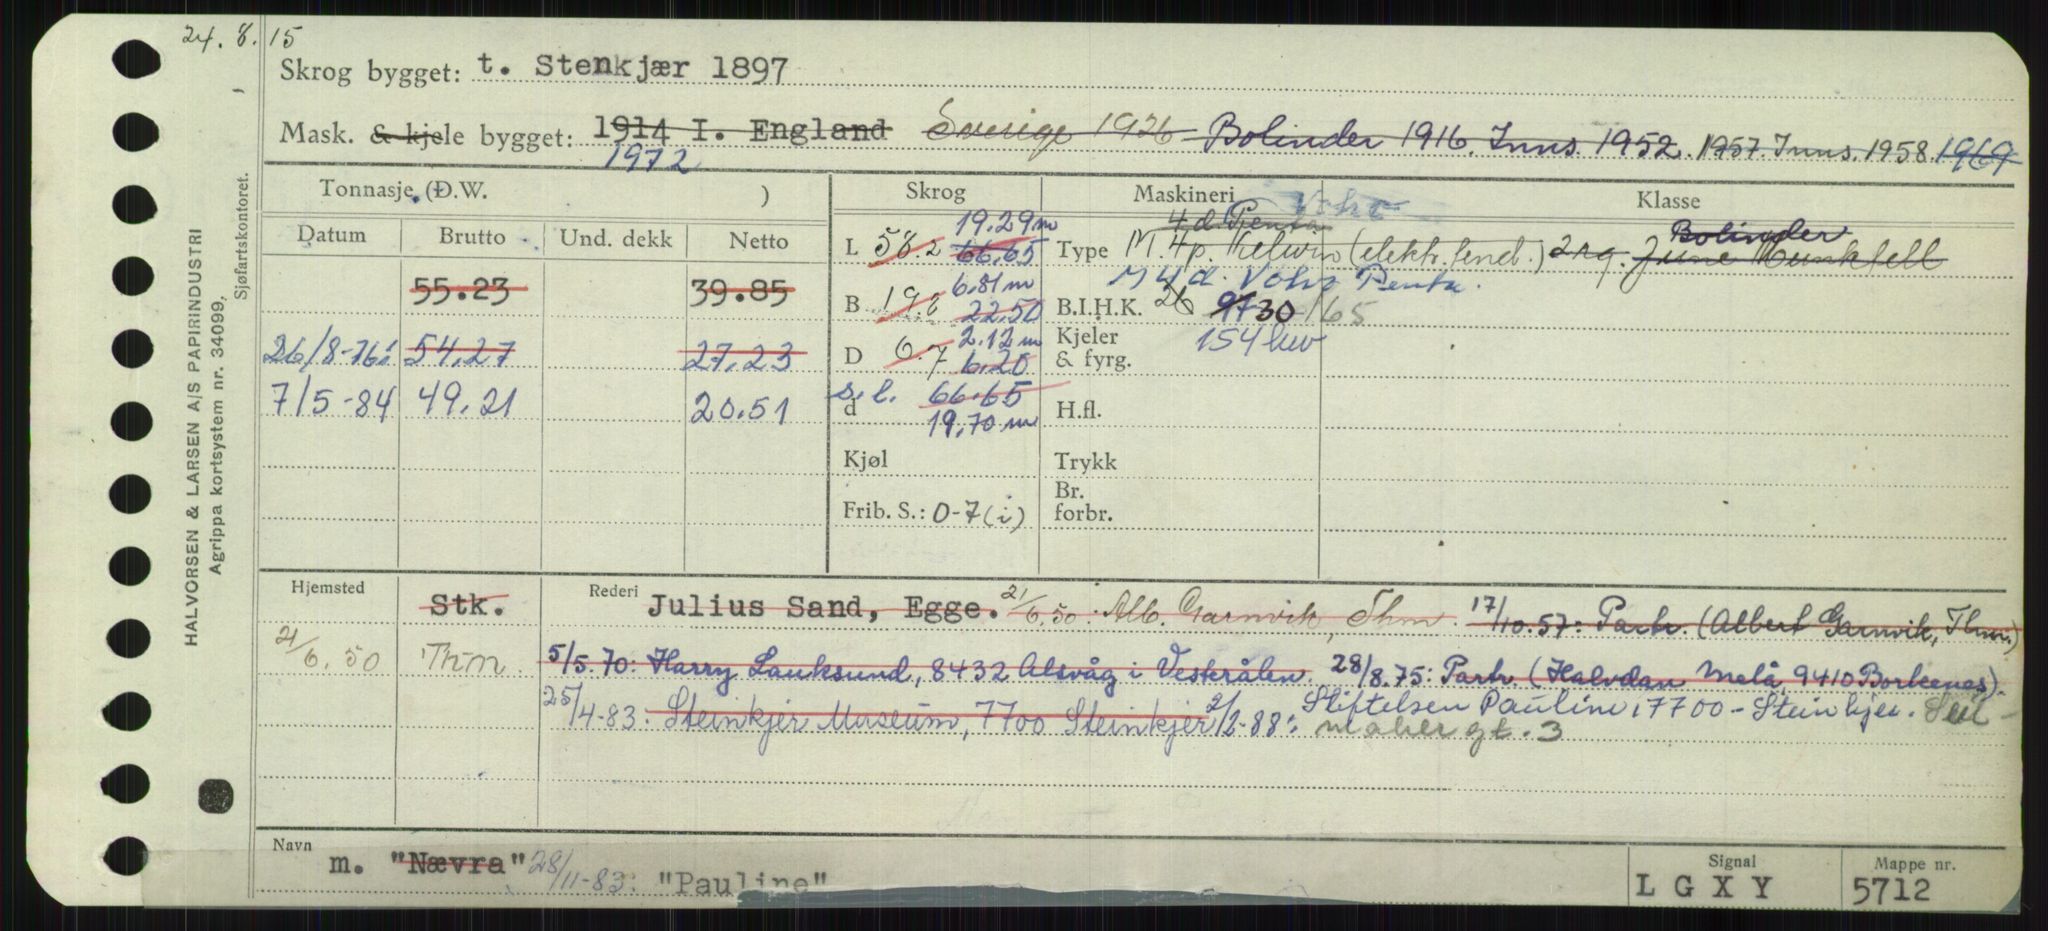 24.8.15
Skrog bygget: t. Stenkjær 1897
Mask. & kjele bygget: 1914 I. England Sverige 1926 Bolinder 1916. Inns 1952. 1957 Inns. 1958. 1969
1972
Tonnasje, (D.W. )
Skrog
Maskineri
Klasse
Datum
Brutto
Und. dekk
Netto
55.23
39.85
26/8-76:
54.27
27.23
7/5-84
49.21
20.51
19.29 m
L 58.2 66.65
6.81 m
B 19.8 22.50
2.12 m
D 6.7 6.20
s.l. 66.65
d 19,70 m
Kjøl
Frib. S.: 0-7 (i)
Volvo
4 d. Penta
Bolinder
Type M. 4p. Kelvin (elektr. tend.) 2 rg. June Munktell
M 4 d. Volvo Penta.
B.I.H.K. 26 97 30 165
Kjeler
& fyrg. 154 kw
H.fl.
Trykk
Br.
forbr.
Hjemsted
Stk.
21/6.50 Thm.
Rederi Julius Sand, Egge. 21/6.50: Alb. Garnvik, Thm. 17/10.57: Partr. (Albert Garnvik, Thm.)
5/5.70: Harry Lauksund, 8432 Alsvåg i Vesterålen. 28/8.75: Partr. (Halvdan Melå, 9410 Borkenes).
25/4-83: Steinkjer Museum, 7700 Steinkjer 2/2-88: Stiftelsen Pauline, 7700 - Steinkjer. Seil-
maker gt. 3
Navn
m. "Nævra" 28/11-83: "Pauline"
Signal
L G X Y
Mappe nr.
5712
HALVORSEN & LARSEN A/S PAPIRINDUSTRI
Agrippa kortsystem nr. 34099,
Sjøfartskontoret.